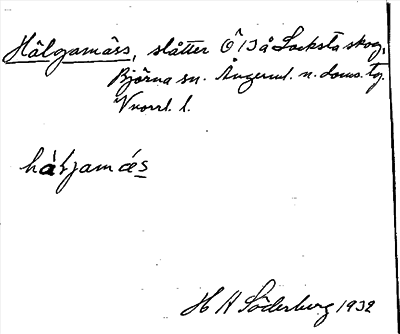 Hälgamäss, slåtter Ö 13 å Locksta skog,
Björna sn. Ångerml. n. doms. tg.
Vnorrl. l.
hàljamás
H A Söderberg 1932